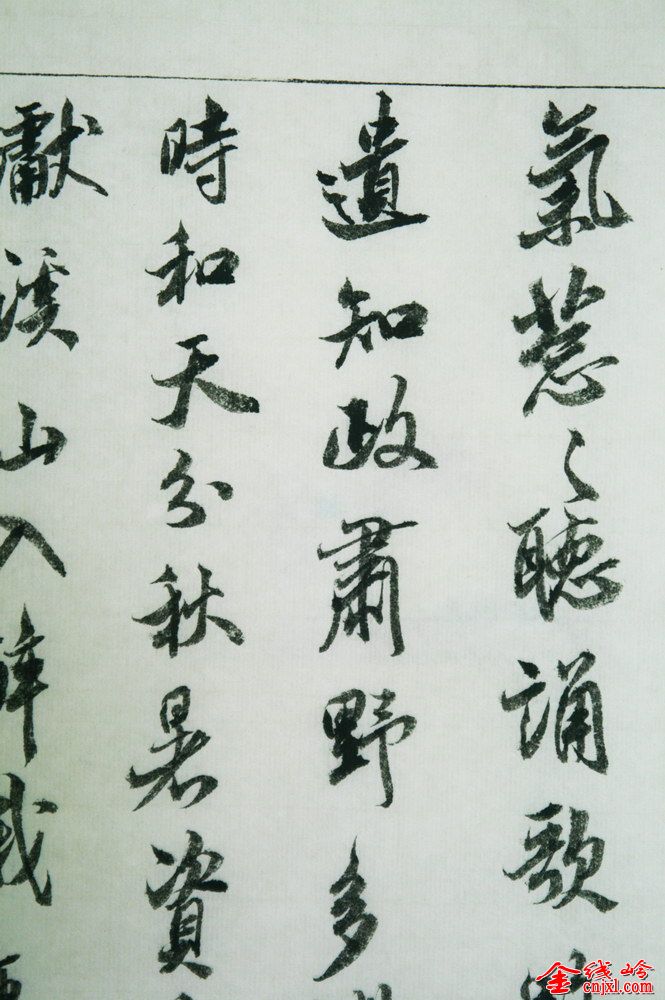 氣葱々聽誦歌
遺知政肅野多
時和天分秋暑資
獻溪山入
金线岭
cnjxl.com